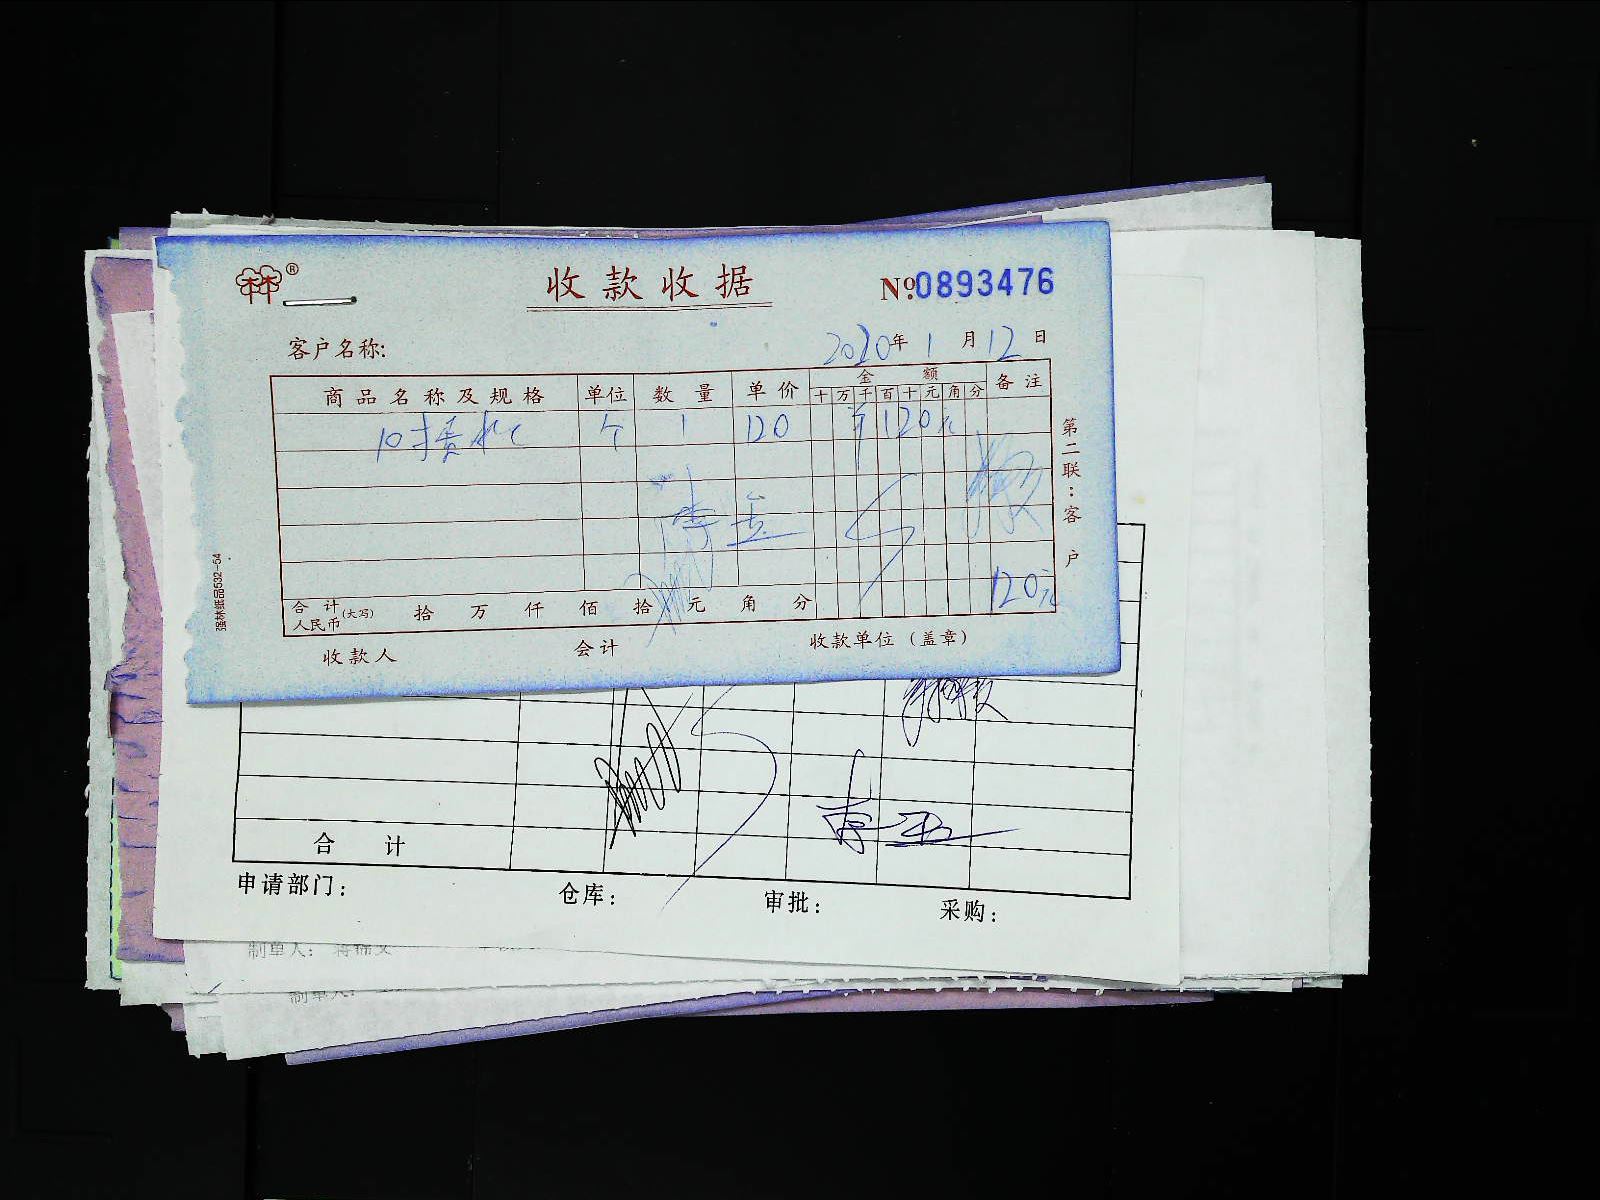 收款收据
®
№0893476
客户名称:
2020年1月12日
商品名称及规格 单位 数量 单价 金额 备注
十万千百十元角分
个 1 120 ¥120元
120元
合计人民币(大写) 拾 万 仟 佰 拾 元 角 分
收款人 会计 收款单位（盖章）
第二联:客户
强林纸品532-54
合计
申请部门: 仓库: 审批: 采购:
制单人:
制单人: